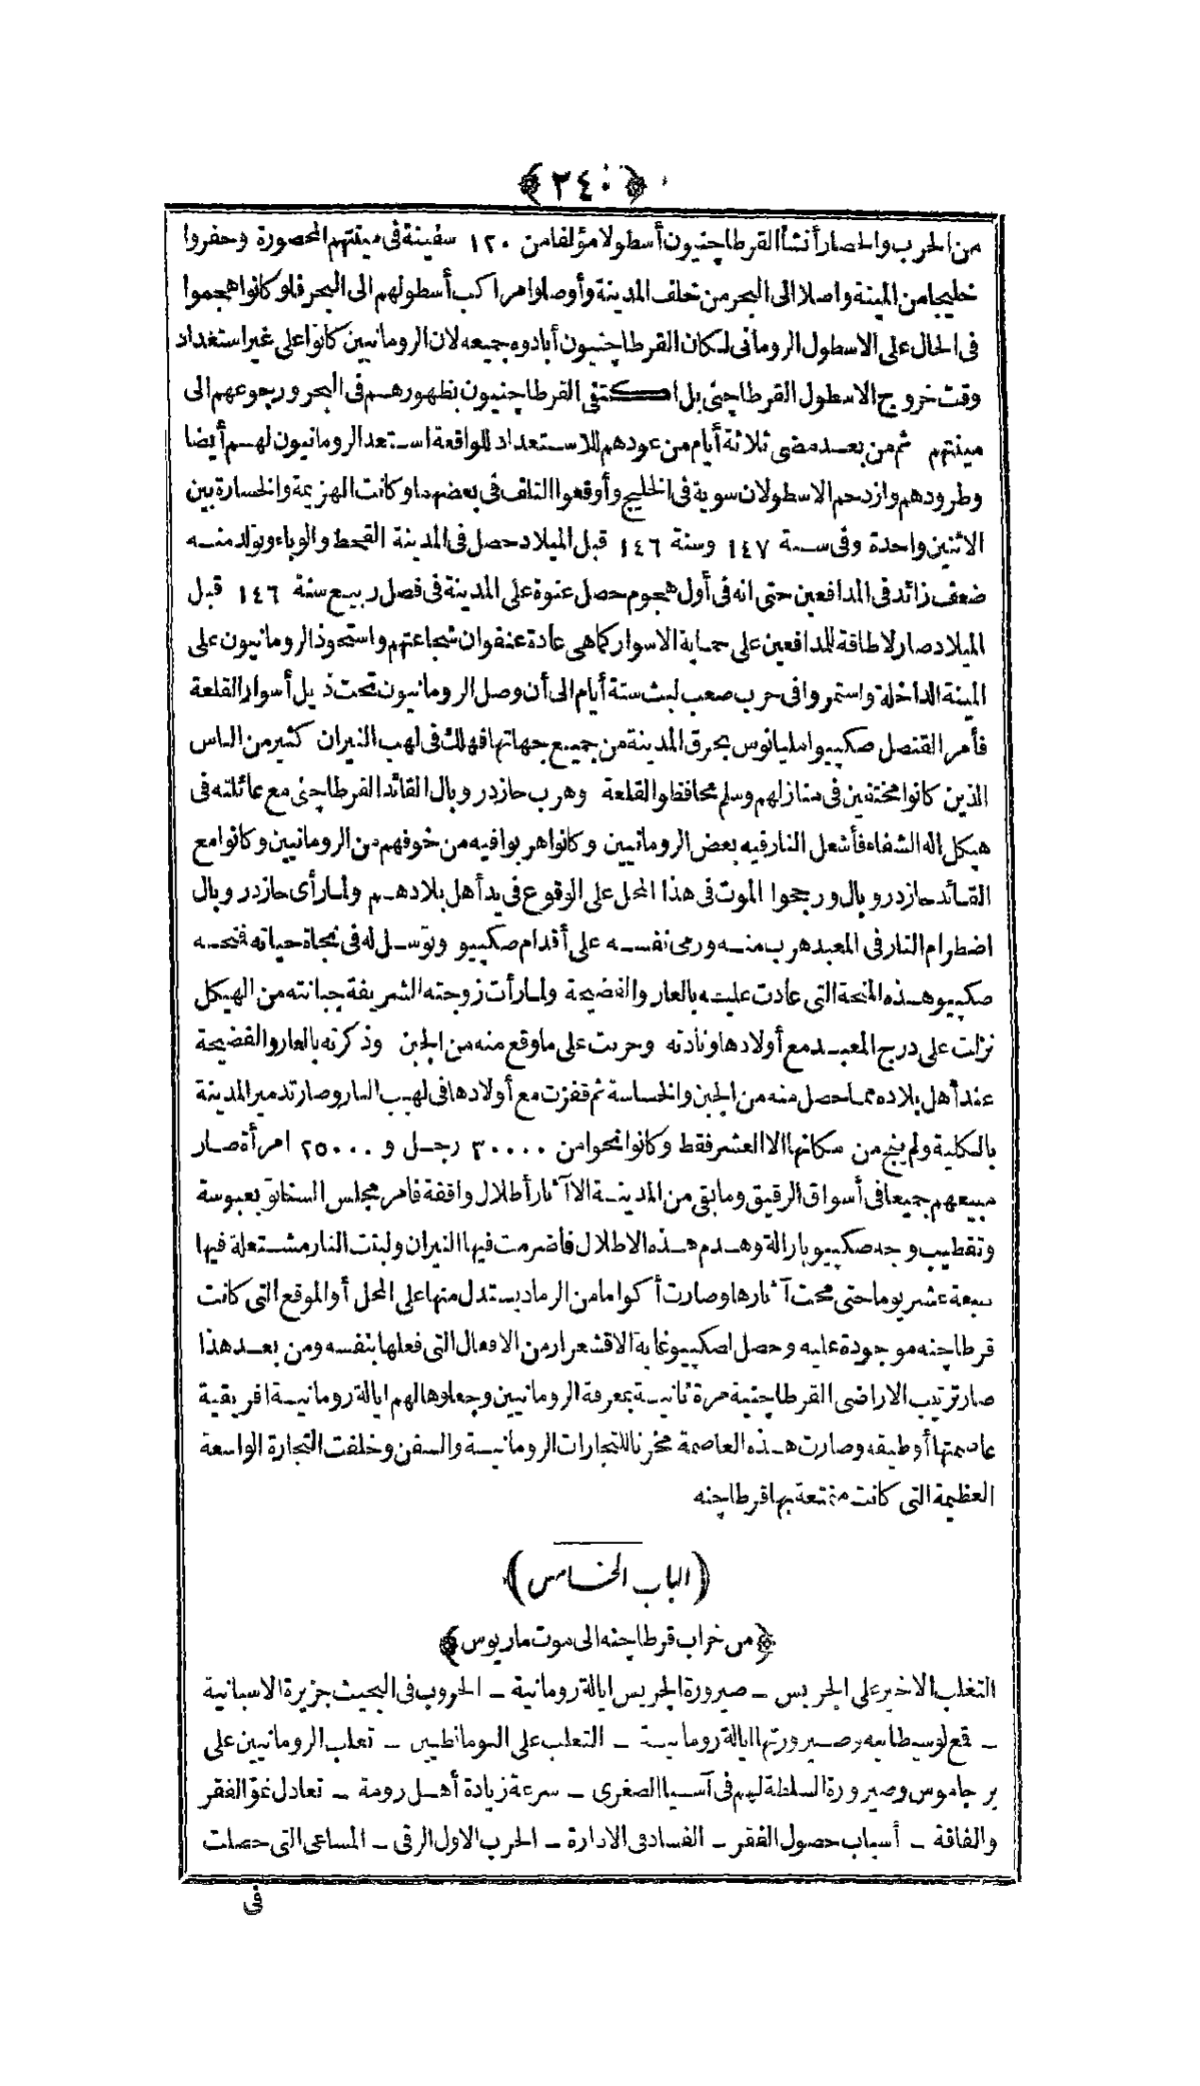 ﴿٢٤٠﴾
من الحرب والحصار أنشأ القرطاجنيون أسطولا مؤلفا من ١٢٠ سفينة فى مينتهم المحصورة وحفروا
خليجا من المينة واصلا الى البحر من خلف المدينة وأوصلوا مراكب أسطولهم الى البحر فلو كانوا هجموا
فى الحال على الاسطول الرومانى لكان القرطاجنيون أبادوه جميعه لان الرومانيين كانوا على غير استعداد
وقت خروج الاسطول القرطاجنى بل اكتفى القرطاجنيون بظهورهم فى البحر ورجوعهم الى
مينتهم ثم من بعد مضى ثلاثة أيام من عودهم للاستعداد للواقعة استعد الرومانيون لهم أيضا
وطرودهم وازدحم الاسطولان سوية فى الخليج وأوقعوا التلف فى بعضهما وكانت الهزيمة والخسارة بين
الاثنين واحدة وفى سنة ١٤٧ وسنة ١٤٦ قبل الميلاد حصل فى المدينة القحط والوباء وتولد منه
ضعف زائد فى المدافعين حتى انه فى أول هجوم حصل عنوة على المدينة فى فصل ربيع سنة ١٤٦ قبل
الميلاد صار لا طاقة للمدافعين على حماية الاسوار كما هى عادة عنفوان شجاعتهم واستحوذ الرومانيون على
المينة الداخلة واستمروا فى حرب صعب لبث ستة أيام الى أن وصل الرومانيون تحت ذيل أسوار القلعة
فأمر القنصل صكيبيو امليانوس بحرق المدينة من جميع جهاتها فهلك فى لهب النيران كثير من الناس
الذين كانوا مختفين فى منازلهم وسلم محافظو القلعة وهرب حازدروبال القائد القرطاجنى مع عائلته فى
هيكل اله الشفاء فأشعل النار فيه بعض الرومانيين وكانوا هربوا فيه من خوفهم من الرومانيين وكانوا مع
القائد حازدروبال ورجحوا الموت فى هذا المحل على الوقوع فى يد أهل بلادهم ولما رأى حازدروبال
اضطرام النار فى المعبد هرب منه ورمى نفسه على أقدام صكيبيو وتوسل له فى نجاة حياته فنحه
صكيبيو هذه المنحة التى عادت عليه بالعار والفضيحة ولما رأت زوجته الشريفة جبانته من الهيكل
نزلت على درج المعبد مع أولادها ونادته وحزنت على ما وقع منه من الجبن وذكرته بالعار والفضيحة
عند أهل بلاده مما حصل منه من الجبن والخساسة ثم قفزت مع أولادها فى لهيب النار وصار تدمير المدينة
بالكلية ولم ينج من سكانها الا العشر فقط وكانوا نحوا من ٣٠٠٠٠ رجل و ٢٥٠٠٠ امرأة صار
مبيعهم جميعا فى أسواق الرقيق وما بقى من المدينة الا آثار أطلال واقفة فامر مجلس السناتو بعبوسة
وتقطيب وجه صكيبيو بازالة وهدم هذه الاطلال فاضرمت فيها النيران ولبثت النار مشتعلة فيها
سبعة عشر يوما حتى محت آثارها وصارت أكواما من الرماد يستدل منها على المحل أو الموقع التى كانت
قرطاجنه موجودة عليه وحصل لصكيبيو غاية الاقشعرار من الافعال التى فعلها بنفسه ومن بعد هذا
صار ترتيب الاراضى القرطاجنية مرة ثانية بمعرفة الرومانيين وجعلوها لهم ايالة رومانية افريقية
عاصمتها أوطيقه وصارت هذه العاصمة مخزنا للتجارات الرومانية والسفن وخلفت التجارة الواسعة
العظيمة التى كانت متمتعة بها قرطاجنه
(الباب الخامس)
﴿من خراب قرطاجنه الى موت ماريوس﴾
التغلب الاخير على الجريس ــ صيرورة الجريس ايالة رومانية ــ الحروب فى البحيث جزيرة الاسبانية
ــ قمع لوسيطانيه وصيرورتها ايالة رومانية ــ التغلب على النومانطيين ــ تغلب الرومانيين على
برجاموس وصيرورة السلطة لهم فى آسيا الصغرى ــ سرعة زيادة أهل رومة ــ تعادل نمو الفقر
والفاقة ــ أسباب حصول الفقر ــ الفساد فى الادارة ــ الحرب الاول الرقى ــ المساعى التى حصلت
فى